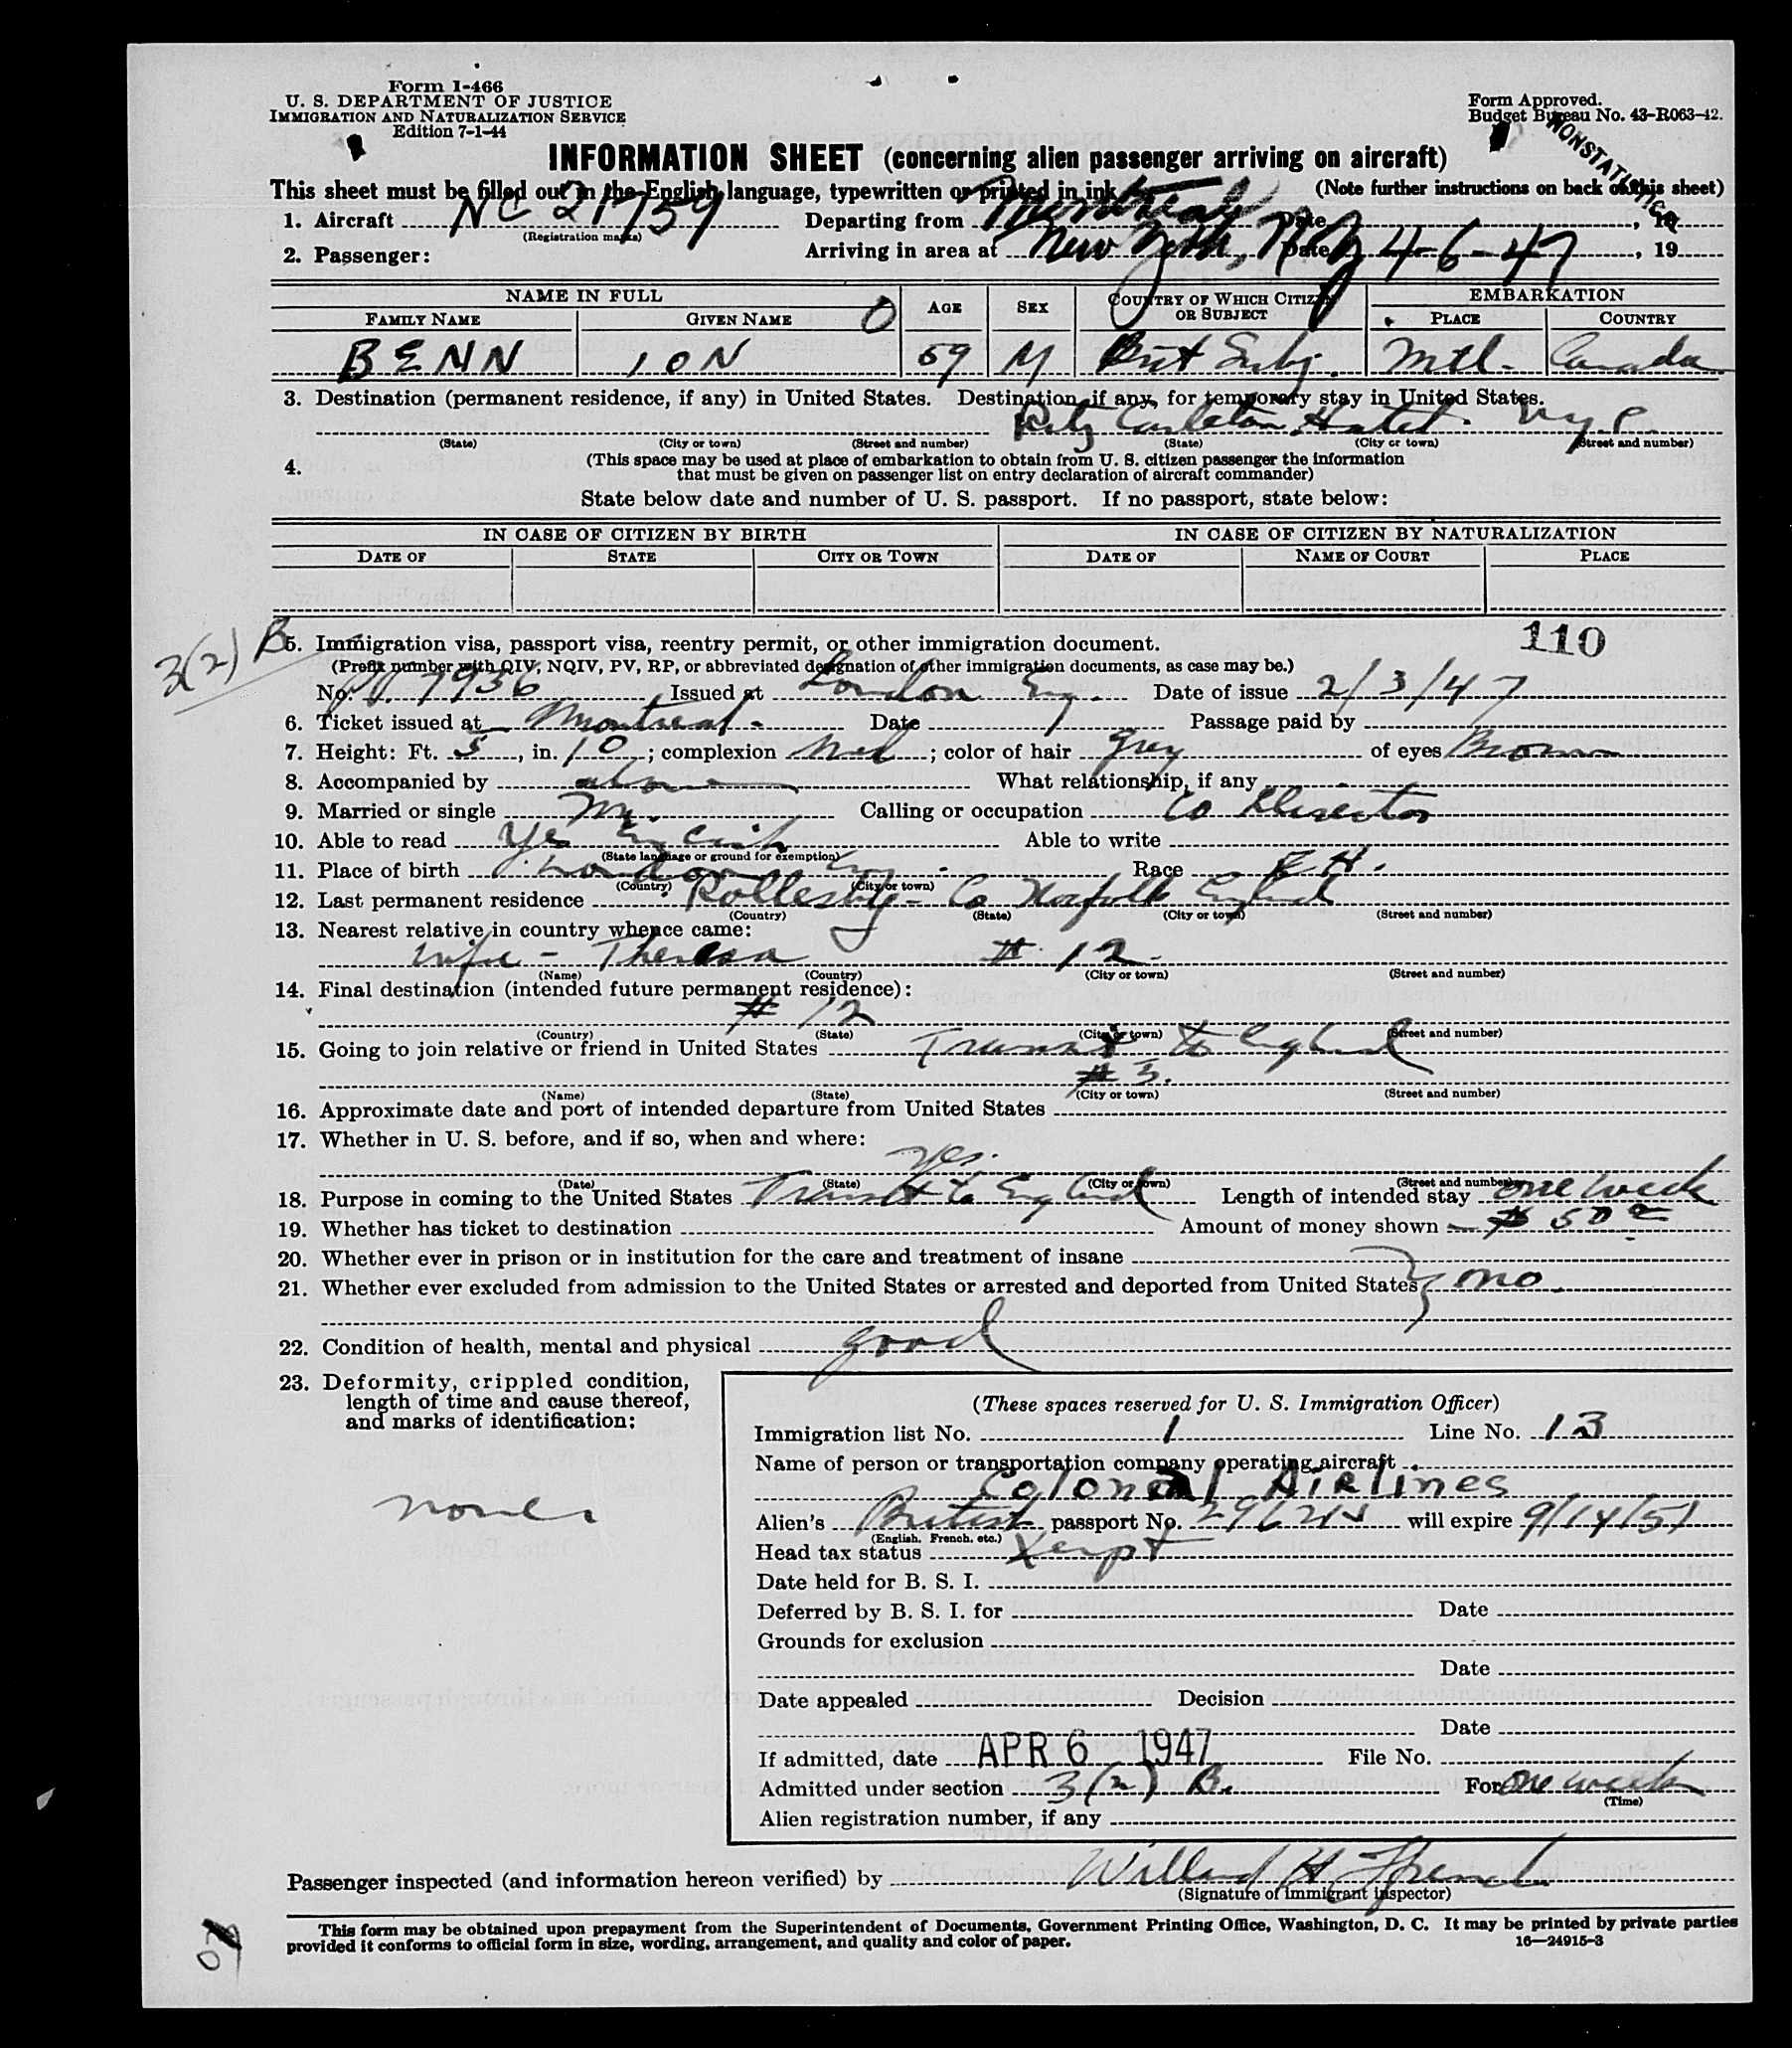 Form I-466
U. S. DEPARTMENT OF JUSTICE
IMMIGRATION AND NATURALIZATION SERVICE
Edition 7-1-44
Form Approved.
Budget Bureau No. 43-R063-42.
NONSTATISTICAL
INFORMATION SHEET (concerning alien passenger arriving on aircraft)
This sheet must be filled out in the English language, typewritten or printed in ink. (Note further instructions on back of this sheet)
1. Aircraft NC 21759 Departing from Montreal Date , 19
(Registration marks)
2. Passenger: Arriving in area at New York, N.Y. Date 4-6-47, 19
NAME IN FULL AGE SEX COUNTRY OF WHICH CITIZEN OR SUBJECT EMBARKATION
FAMILY NAME GIVEN NAME PLACE COUNTRY
0
BENN ION 59 M Brit Subj. Mtl. Canada
3. Destination (permanent residence, if any) in United States. Destination, if any, for temporary stay in United States.
Ritz Carleton Hotel. N.Y.C.
(State) (City or town) (Street and number) (State) (City or town) (Street and number)
4. (This space may be used at place of embarkation to obtain from U. S. citizen passenger the information
that must be given on passenger list on entry declaration of aircraft commander)
State below date and number of U. S. passport. If no passport, state below:
IN CASE OF CITIZEN BY BIRTH IN CASE OF CITIZEN BY NATURALIZATION
DATE OF STATE CITY OR TOWN DATE OF NAME OF COURT PLACE
110
3(2) B
5. Immigration visa, passport visa, reentry permit, or other immigration document.
(Prefix number with QIV, NQIV, PV, RP, or abbreviated designation of other immigration documents, as case may be.)
No. PV. 7936 Issued at London Eng. Date of issue 2/3/47
6. Ticket issued at Montreal. Date Passage paid by
7. Height: Ft. 5, in. 10; complexion Med; color of hair Grey of eyes Brown
8. Accompanied by alone What relationship, if any
9. Married or single M. Calling or occupation Co Director
10. Able to read Yes English Able to write
(State language or ground for exemption)
11. Place of birth London Eng. Race E H.
(Country) (City or town)
12. Last permanent residence Rollesby - Co Norfolk England
(Country) (State) (City or town) (Street and number)
13. Nearest relative in country whence came:
wife - Theresa # 12.
(Name) (Country) (City or town) (Street and number)
14. Final destination (intended future permanent residence):
# 12
(Country) (State) (City or town) (Street and number)
15. Going to join relative or friend in United States Transit to England
# 3.
(Name) (State) (City or town) (Street and number)
16. Approximate date and port of intended departure from United States
17. Whether in U. S. before, and if so, when and where:
Yes.
(Date) (State) (City or town) (Street and number)
18. Purpose in coming to the United States Transit to England Length of intended stay one week
19. Whether has ticket to destination Amount of money shown $ 50
20. Whether ever in prison or in institution for the care and treatment of insane
21. Whether ever excluded from admission to the United States or arrested and deported from United States no.
22. Condition of health, mental and physical good
23. Deformity, crippled condition,
length of time and cause thereof,
and marks of identification:
none
(These spaces reserved for U. S. Immigration Officer)
Immigration list No. 1 Line No. 13
Name of person or transportation company operating aircraft
Colonial AiRlines
Alien's British passport No. will expire 9/14/51
(English, French, etc.)
Head tax status Xempt
Date held for B. S. I.
Deferred by B. S. I. for Date
Grounds for exclusion
Date
Date appealed Decision
Date
If admitted, date APR 6 1947 File No.
Admitted under section 3(2) B. For one week
(Time)
Alien registration number, if any
Passenger inspected (and information hereon verified) by Willard H
(Signature of immigrant inspector)
This form may be obtained upon prepayment from the Superintendent of Documents, Government Printing Office, Washington, D. C. It may be printed by private parties
provided it conforms to official form in size, wording, arrangement, and quality and color of paper. 16—24915-3